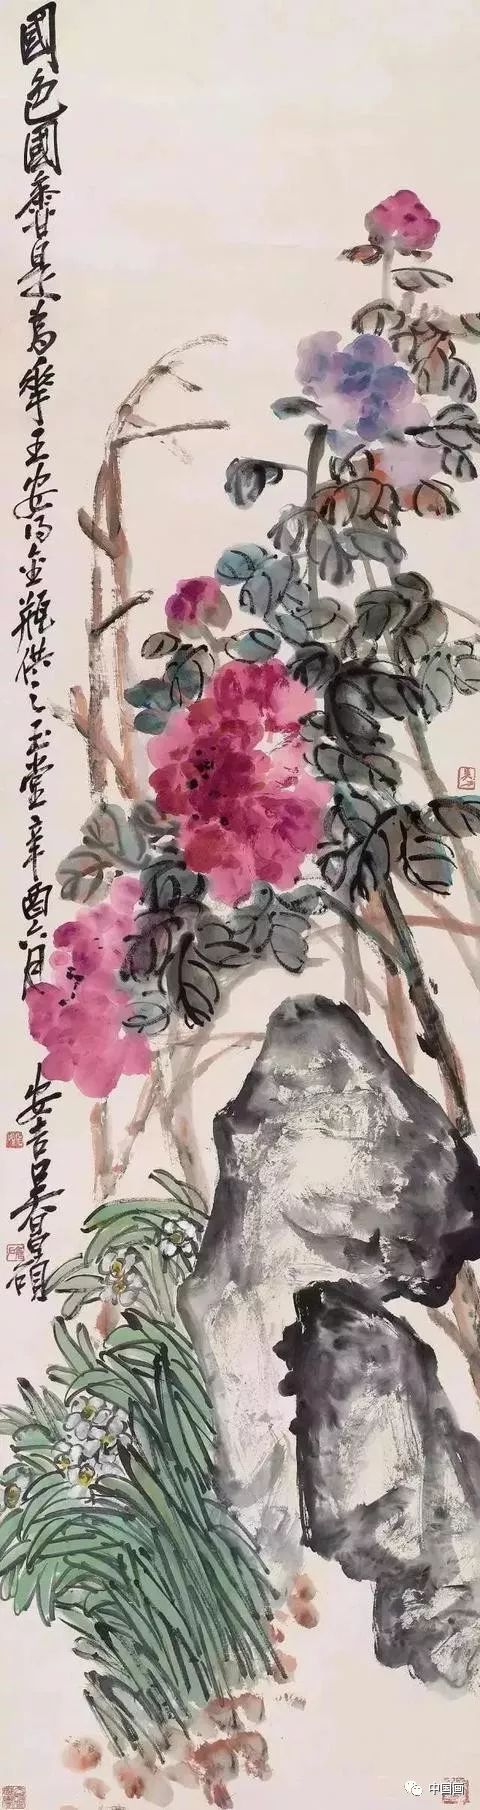 國色國香是為華王安得金瓶供之玉堂辛酉六月
安吉吳昌碩
中国画